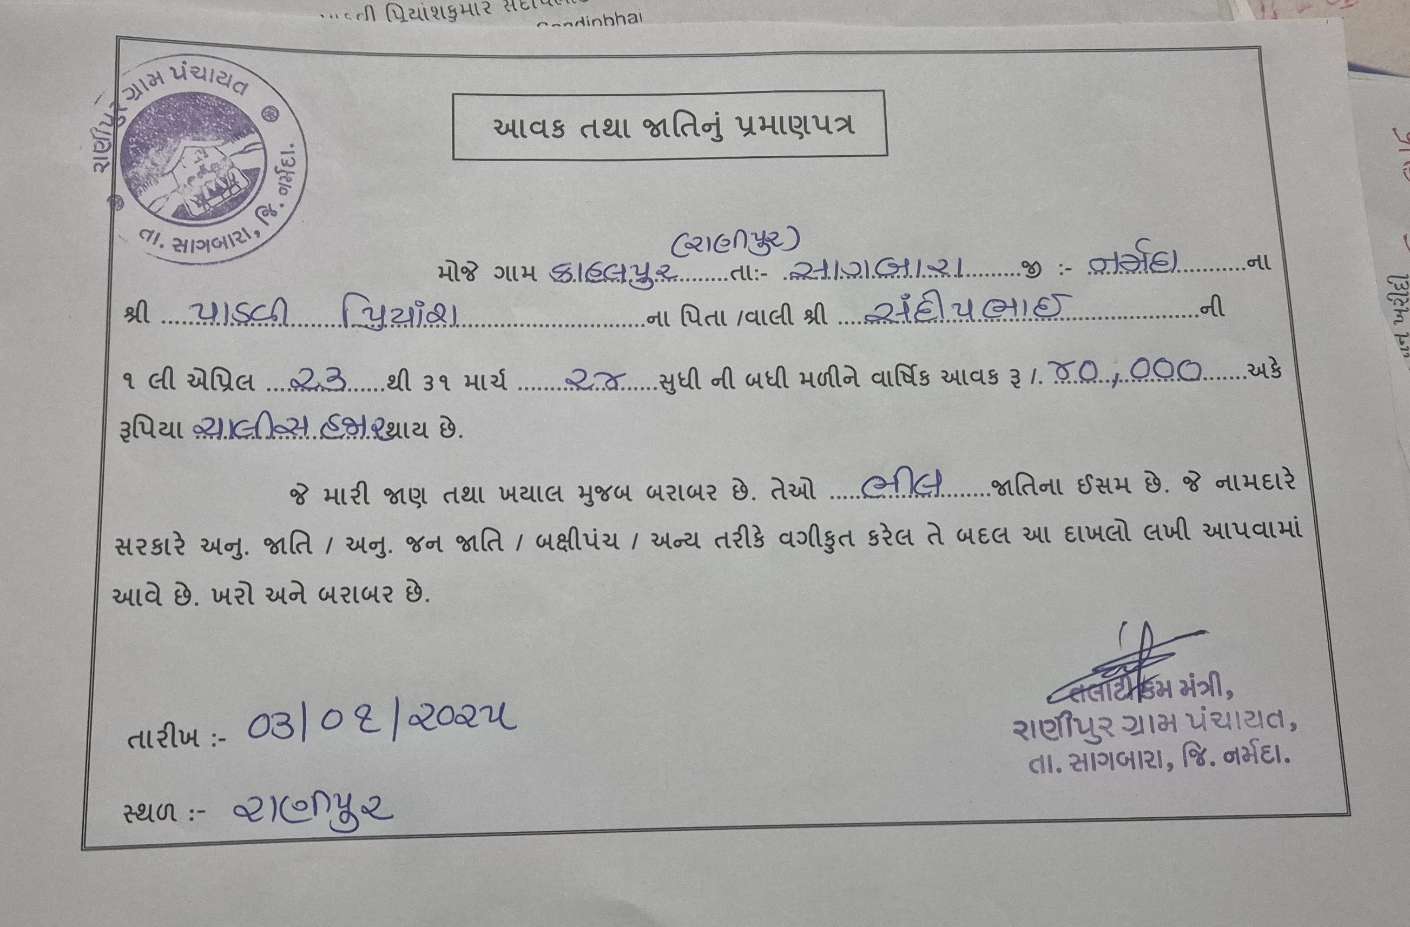 પ્રિયાંશકુમાર
રાણીપુર ગ્રામ પંચાયત
તા. સાગબારા, જિ. નર્મદા.
આવક તથા જાતિનું પ્રમાણપત્ર
(રાણીપુર)
મોજે ગામ કાહલપુર........તા:- .સાગબારા.........જી :- નર્મદા............ના
શ્રી .....પાડવી......પ્રિયાંશ..........................ના પિતા /વાલી શ્રી ....સંદીપભાઈ....................ની
૧ લી એપ્રિલ ...૨૩......થી ૩૧ માર્ચ ........૨૪.....સુધી ની બધી મળીને વાર્ષિક આવક રૂ /. ૪૦,૦૦૦.......અકે
રૂપિયા ચાલીસ હજાર થાય છે.
જે મારી જાણ તથા ખયાલ મુજબ બરાબર છે. તેઓ .....ભીલ........જાતિના ઈસમ છે. જે નામદારે
સરકારે અનુ. જાતિ / અનુ. જન જાતિ / બક્ષીપંચ / અન્ય તરીકે વગીકુત કરેલ તે બદલ આ દાખલો લખી આપવામાં
આવે છે. ખરો અને બરાબર છે.
તલાટી કમ મંત્રી,
રાણીપુર ગ્રામ પંચાયત,
તા. સાગબારા, જિ. નર્મદા.
તારીખ :- ૦૩/૦૧/૨૦૨૫
સ્થળ :- રાણીપુર